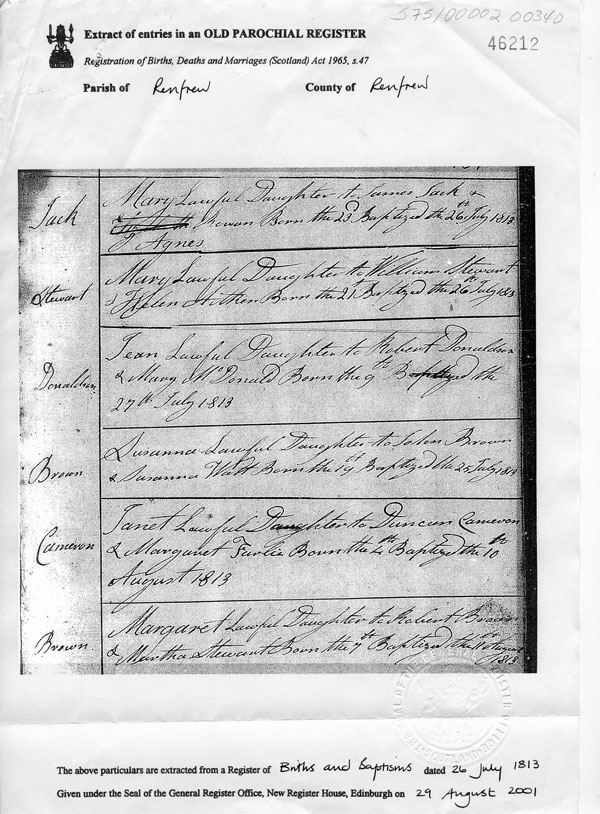 575/00002 00340
46212
Extract of entries in an OLD PAROCHIAL REGISTER
Registration of Births, Deaths and Marriages (Scotland) Act 1965, s.47
Parish of Renfrew County of Renfrew
Jack
Mary Lawful Daughter to James Jack &
Rowan Born the 23d Baptized the 26th July 1813
Agnes
Stewart
Mary Lawful Daughter to William Stewart
& Helen Born the 21st Baptized the 26th July 1813
Donaldson
Jean Lawful Daughter to Robert Donaldson
& Mary McDonald Born the 9th Baptized the
27th July 1813
Brown
Susanna Lawful Daughter to John Brown
& Susanna Watt Born the 19th Baptized the 25 July 1813
Cameron
Janet Lawful Daughter to Duncan Cameron
& Margaret Fairlie Born the 4th Baptized the 10th
August 1813
Brown
Margaret Lawful Daughter to Robert Brown
& Martha Stewart Born the 7th Baptized the August
1813
The above particulars are extracted from a Register of Births and Baptisms dated 26 July 1813
Given under the Seal of the General Register Office, New Register House, Edinburgh on 29 August 2001